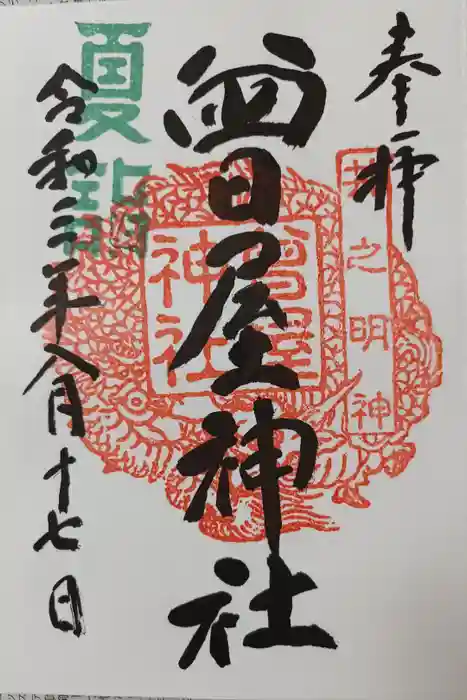 奉拝
井之明神
曾屋神社
曾屋神社
夏詣
令和三年八月十七日